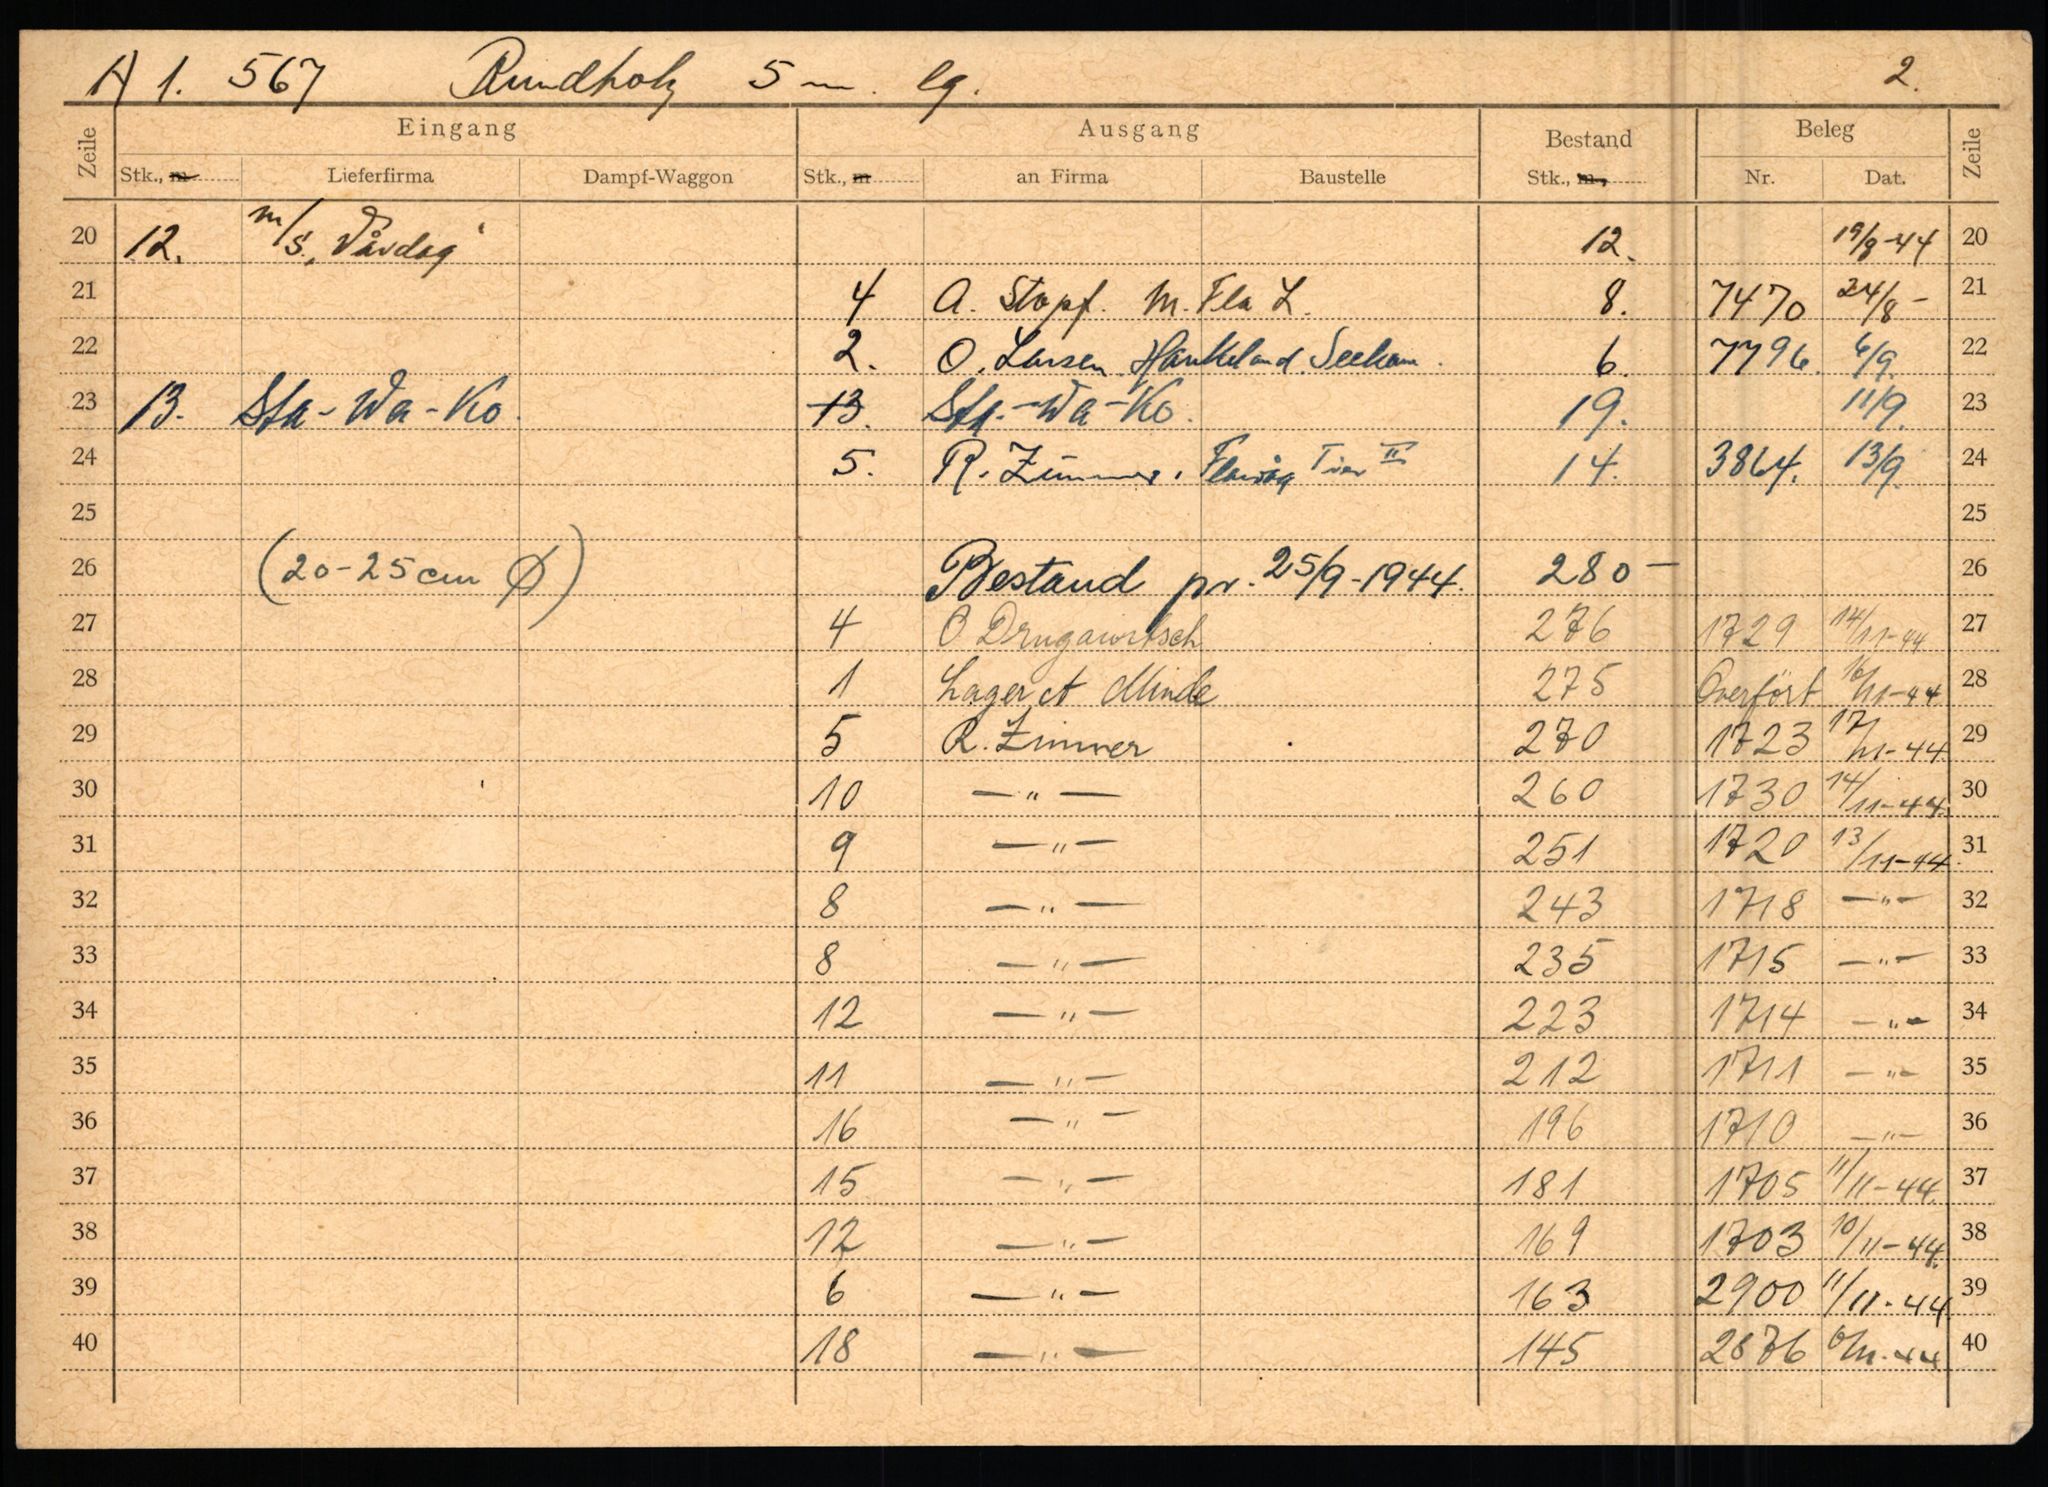 A 1. 567 Rundholz 5 m. lg. 2.
Zeile Eingang Ausgang Bestand Beleg Zeile
Stk., m Lieferfirma Dampf-Waggon Stk., m an Firma Baustelle Stk., m, Nr. Dat.
20 12. m/s. "Vårdag" 12. 19/8-44 20
21 4 A. Stopf. M. Fla L. 8. 7470 24/8 - 21
22 2. O. Larsen. 6. 7796. 6/9. 22
23 13. Sta-Wa-Ko. 13. Sta.-Wa-Ko. 19. 11/9. 23
24 5. R. Zimmer. II 14. 3864. 13/9. 24
25 25
26 (20-25 cm Ø) Bestand pr. 25/9-1944. 280 - 26
27 4 O Drugawitsch 276 1729 14/11-44 27
28 1 Lager ct Minde 275 Overført 16/11-44 28
29 5 R. Zimmer 270 1723 17/11-44. 29
30 10 —"— 260 1730 14/11-44. 30
31 9 —"— 251 1720 13/11-44. 31
32 8 —"— 243 1718 —"— 32
33 8 —"— 235 1715 —"— 33
34 12 —"— 223 1714 —"— 34
35 11 —"— 212 1711 —"— 35
36 16 —"— 196 1710 —"— 36
37 15 —"— 181 1705 11/11-44. 37
38 12 —"— 169 1703 10/11-44. 38
39 6 —"— 163 2900 11/11-44 39
40 18 —"— 145 2876 40